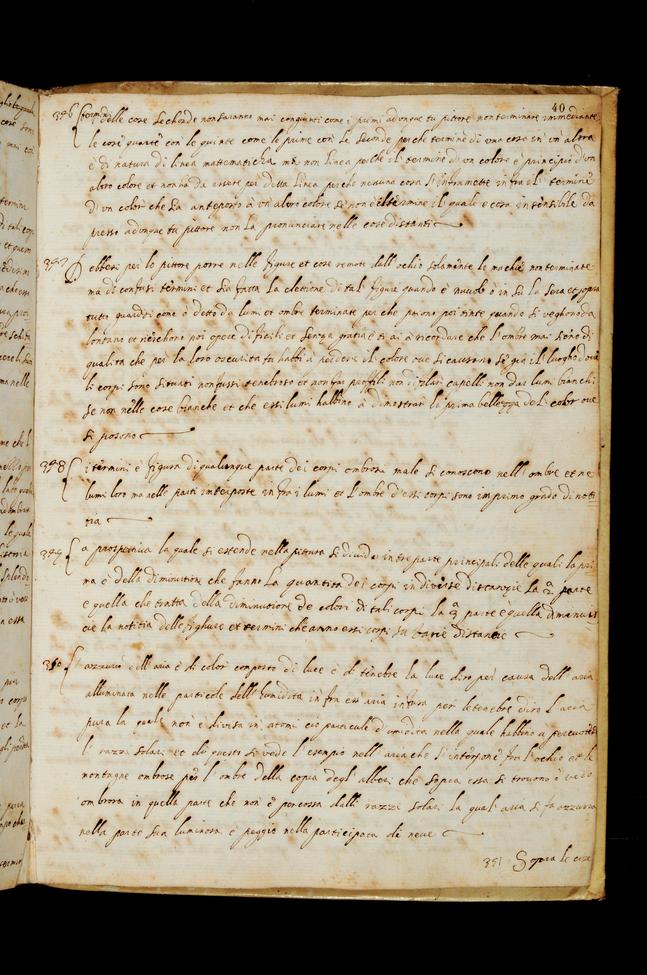 40
346 termini delle cose seconde non saranno mai congiunti come i primi adonque tu pittore non terminare immediante
le cose quarte con le quinte come le prime con le seconde perche termine di una cose in un altra
è di natura di linea matematicha ma non linea perche il termine d'un colore è principio d'un
altro colore et non ha da essere pero detta linea perche nessuna cosa s'inframette infra el termine
di un color che sia anteposto a un altro colore se non el termine il quale e cosa insensibile da
presso adonque tu pittore non la pronunciare nelle cose distanti
347 Debbesi per lo pittore porre nelle figure et cose remote dall'ochio solamente le machie non terminate
ma di confusi termini et sia fatta la elettione di tal figure quando è nuvolo o in su la sera et sopra
tutto guardisi come ò detto da lumi et ombre terminate perche paiono poi tinte quando si veghono da
lontano et rieschono poi opere dificili et senza gratia et ti ai à ricordare che l'ombre mai siano di
qualita che per la loro oscurita tu habbi à perdere il colore ove si causano se gia il luogho dove
li corpi sono situati non fussi tenebroso et non far proffili non disfilar capelli non dar lumi bianchi
se non nelle cose bianche et che essi lumi habbino à dimostrar la prima bellezza del color ove
si posono
348 i termini è figura di qualunque parte dei corpi ombrosi male si conoscono nell'ombre et ne
lumi loro ma nelle parti interposte infra i lumi et l'ombre d'essi corpi sono in primo grado di noti-
tia
349 La prospettiva la quale si estende nella pittura si divide in tre parte principali delle quali la pri
ma è della diminutione che fanno la quantita dei corpi in diverse distanzie la 2a parte
è quella che tratta della diminutione de colori di tali corpi la 3a parte è quella diminuis-
cie la notitia delle fighure et termini che anno essi corpi in varie distanzie
350 L'azzurro dell'aria è di color composto di luce è di tenebre la luce diro per causa dell'aria
alluminata nelle particole dell'humidita infra essa aria infusa per le tenebre dico l'aria
pura la quale non è divisa in atomi cio particule d'umidita nella quale habbino a percuotere
li razzi solari et di questo si vede l'esempio nell'aria che s'interpone fra l'ochio et le
montagne ombrose per l'ombre della copia degl'alberi che sopra essa si trovono è vero
ombrosa in quella parte che non è percossa dalli razzi solari la qual aria si fa azzurra
nella parte sua luminosa è peggio nella parte coperta di neve
351 Sopra le cose